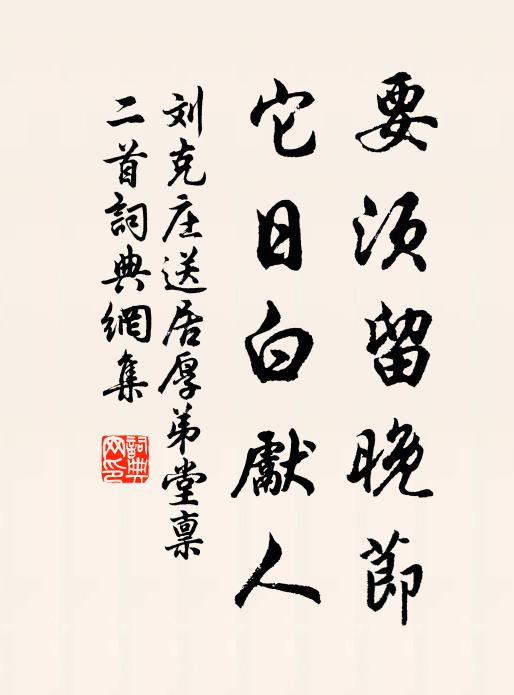 要须留晚節
它日白獻人
刘克庄送居厚弟堂禀
二首詞典網集
詞典網印